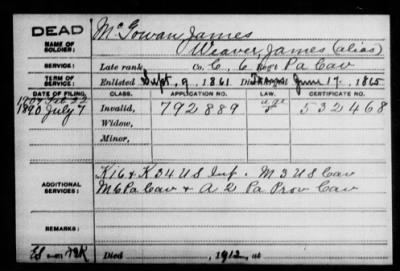 DEAD
NAME OF SOLDIER:
McGowan, James
Weaver, James (alias)
SERVICE: Late rank, Co. C, 6 Reg't Pa Cav
TERM OF SERVICE: Enlisted Sept. 9, 1861 Discharged June 17, 1865
DATE OF FILING. CLASS. APPLICATION NO. LAW. CERTIFICATE NO.
1890 July 7 Invalid, 792889 532468
Widow,
Minor,
ADDITIONAL SERVICES:
K 16 & K 34 U S Inf. M 3 U S Cav
M 6 Pa Cav & A 2 Pa Prov Cav
REMARKS:
Died , 1912, at